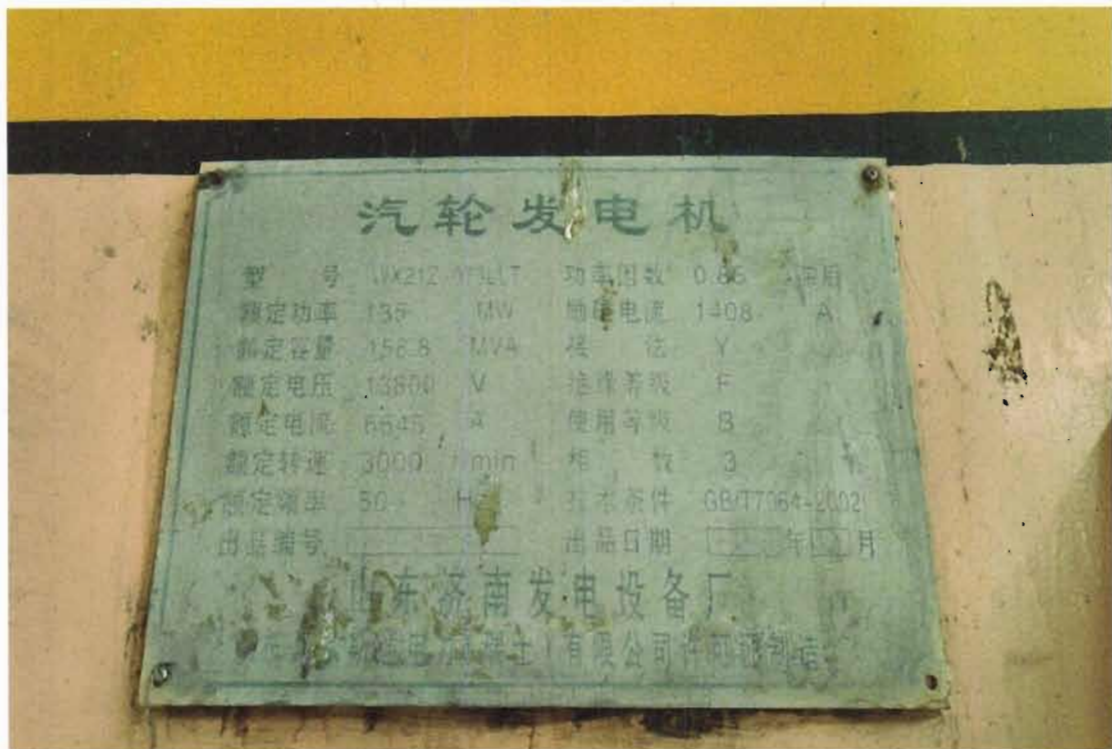 汽轮发电机
型 号 功率因数 0.85 滞后
额定功率 135 MW 励磁电流 1408 A
额定容量 158.8 MVA 接 法 Y
额定电压 13800 V 绝缘等级 F
额定电流 6645 A 使用等级 B
额定转速 3000 r/min 相 数 3
额定频率 50 Hz 技术条件 GB/T7064-2002
出品编号 出品日期 年 月
山东济南发电设备厂
有限公司许可证制造